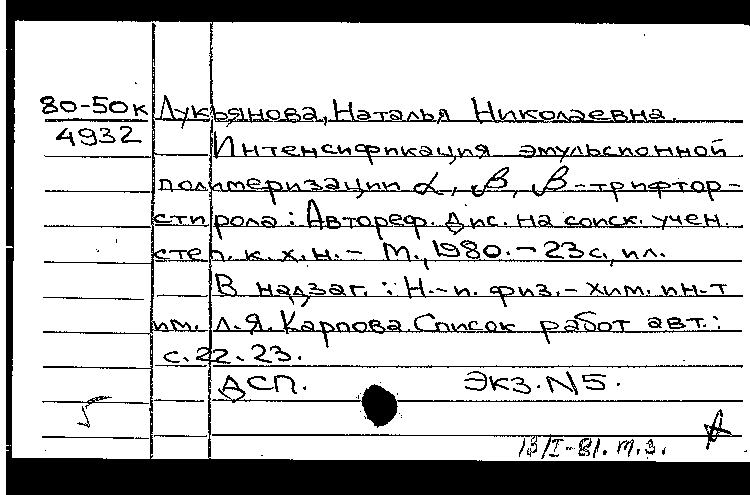 80-50к Лукьянова, Наталья Николаевна.
4932
Интенсификация эмульсионной
полимеризации α, β, β-трифтор-
стирола: Автореф. Дис. на соиск. учен.
степ. к. х. н. - М., 1980. - 23 с., ил.
В надзаг.: Н.-и. физ.-хим. ин-т
им. Л.Я. Карпова. Список работ авт.:
с. 22-23.
ДСП. Экз. N5.
13/I-81. т.з.